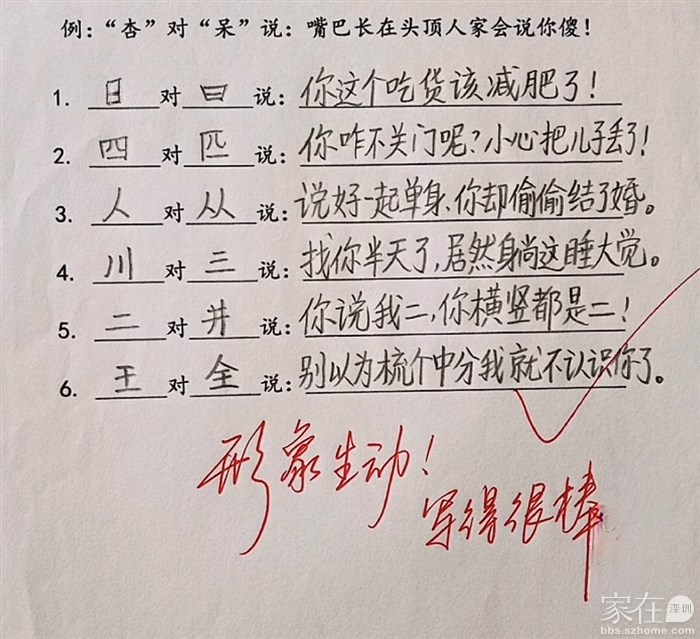 例：“杏”对“呆”说：嘴巴长在头顶人家会说你傻！
1. 日对曰说：你这个吃货该减肥了！
2. 四对匹说：你咋不关门呢？小心把儿子丢了！
3. 人对从说：说好一起单身、你却偷偷结了婚。
4. 川对三说：找你半天了，居然躺这睡大觉。
5. 二对井说：你说我二，你横竖都是二！
6. 王对全说：别以为梳个中分我就不认识你了。
形象生动！
写得很棒
家在深圳
bbs.szhome.com